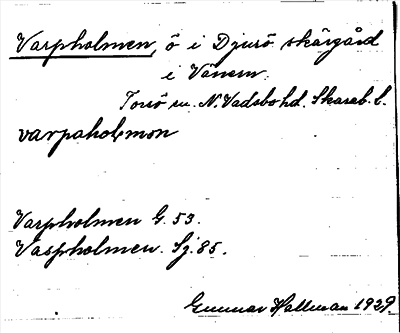 Varpholmen, ö i Djurö skärgård
i Vänern.
Torsö sn. N. Vadsbo hd. Skarab. l.
varpaholmon
Varpholmen G. 53.
Vaspholmen. Sj. 85.
Gunnar Hallman 1929.